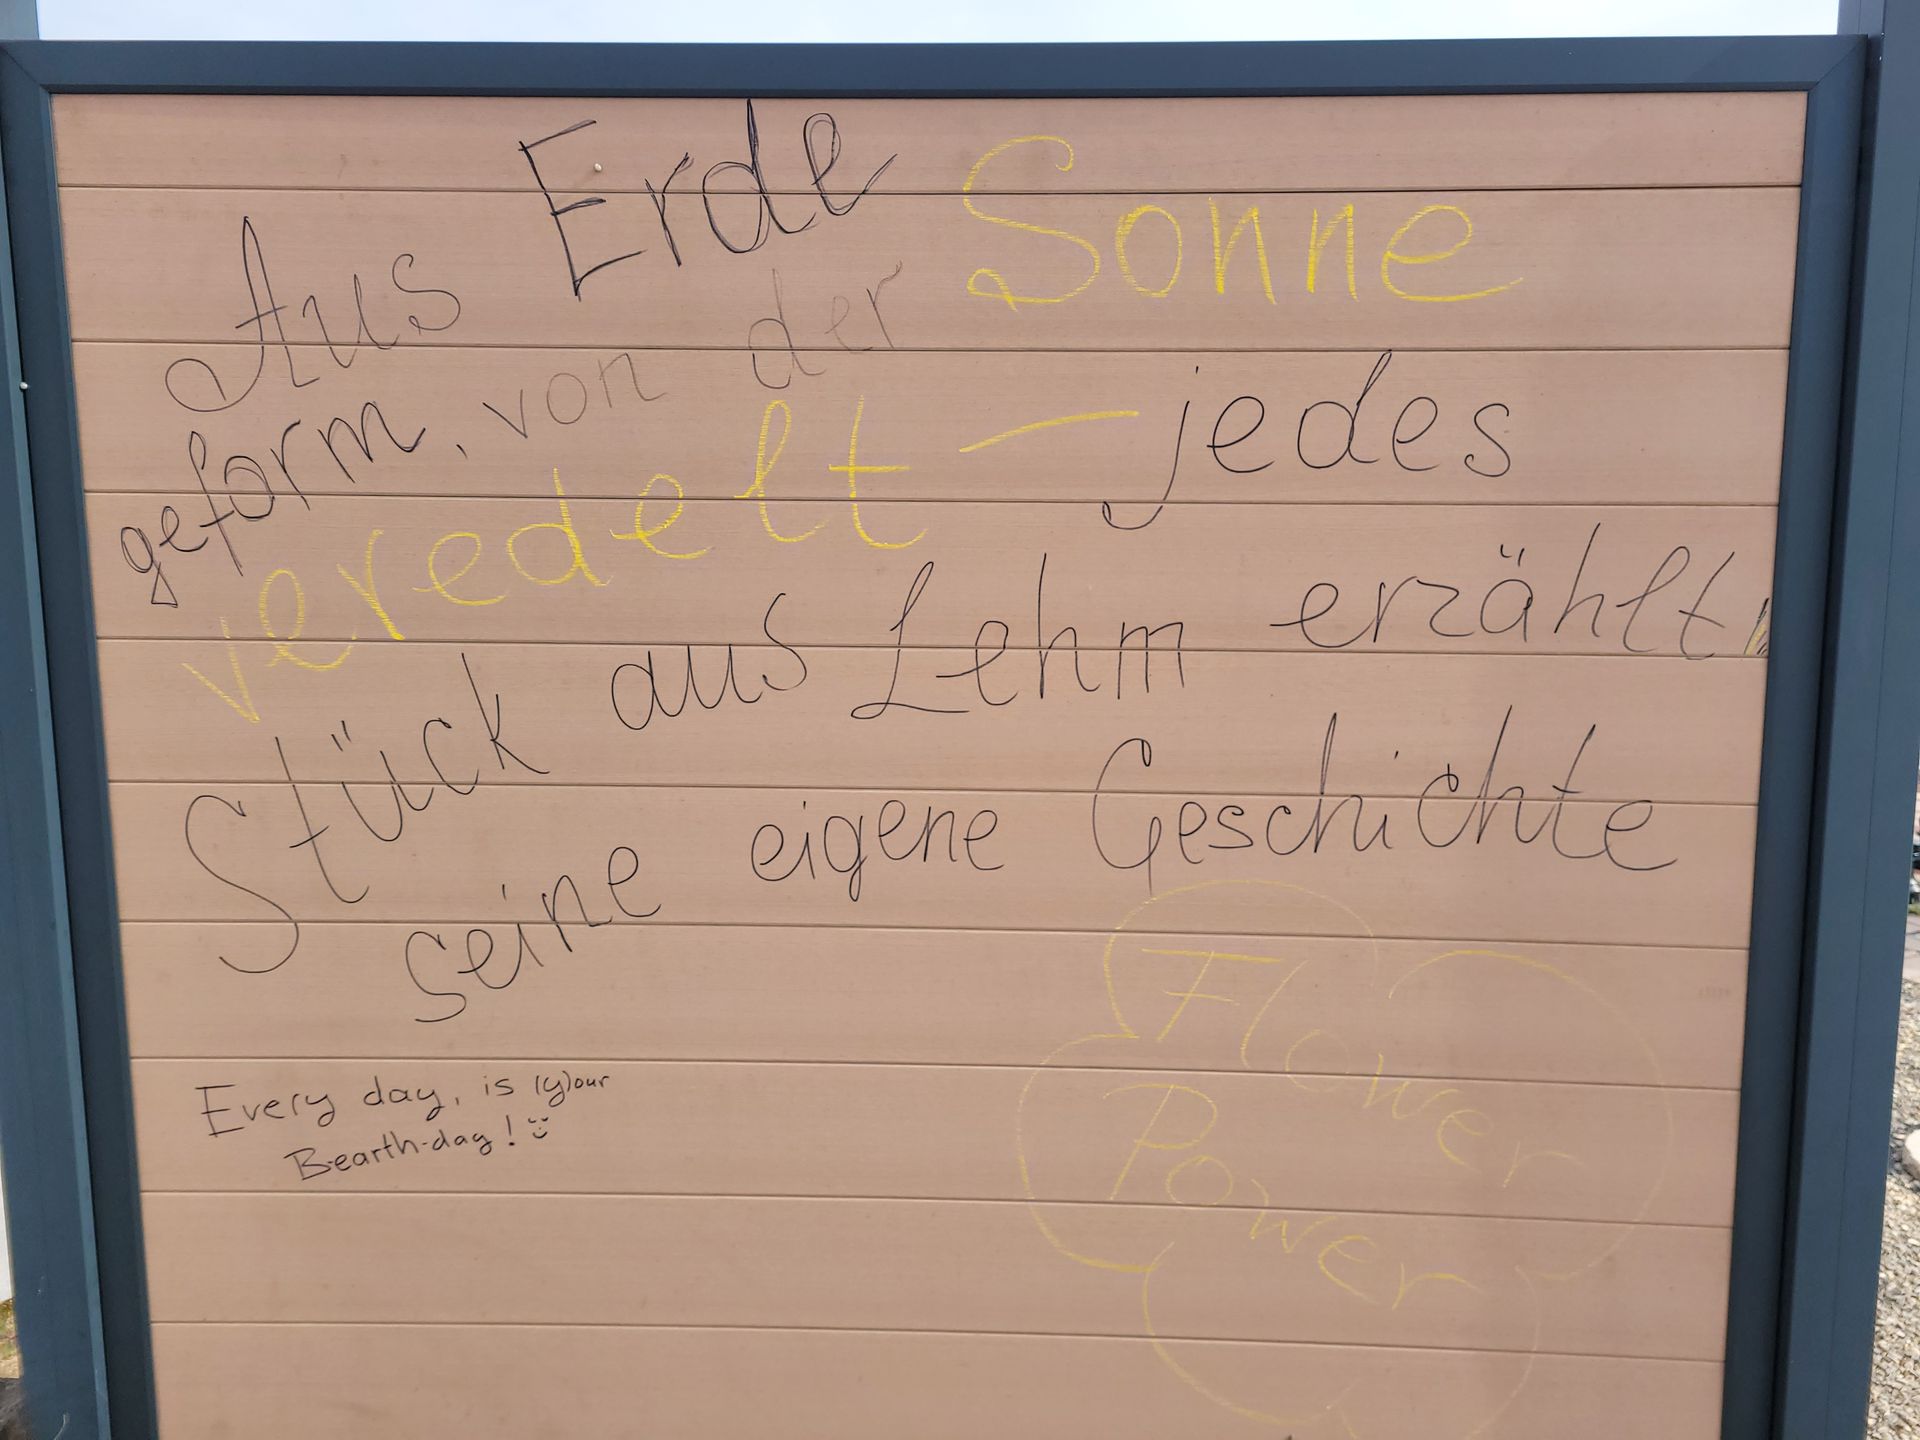 Aus Erde
geform, von der Sonne
veredelt – jedes
Stück aus Lehm erzählt
seine eigene Geschichte
Every day, is (y)our
B-earth-day! :)
Flower
Power